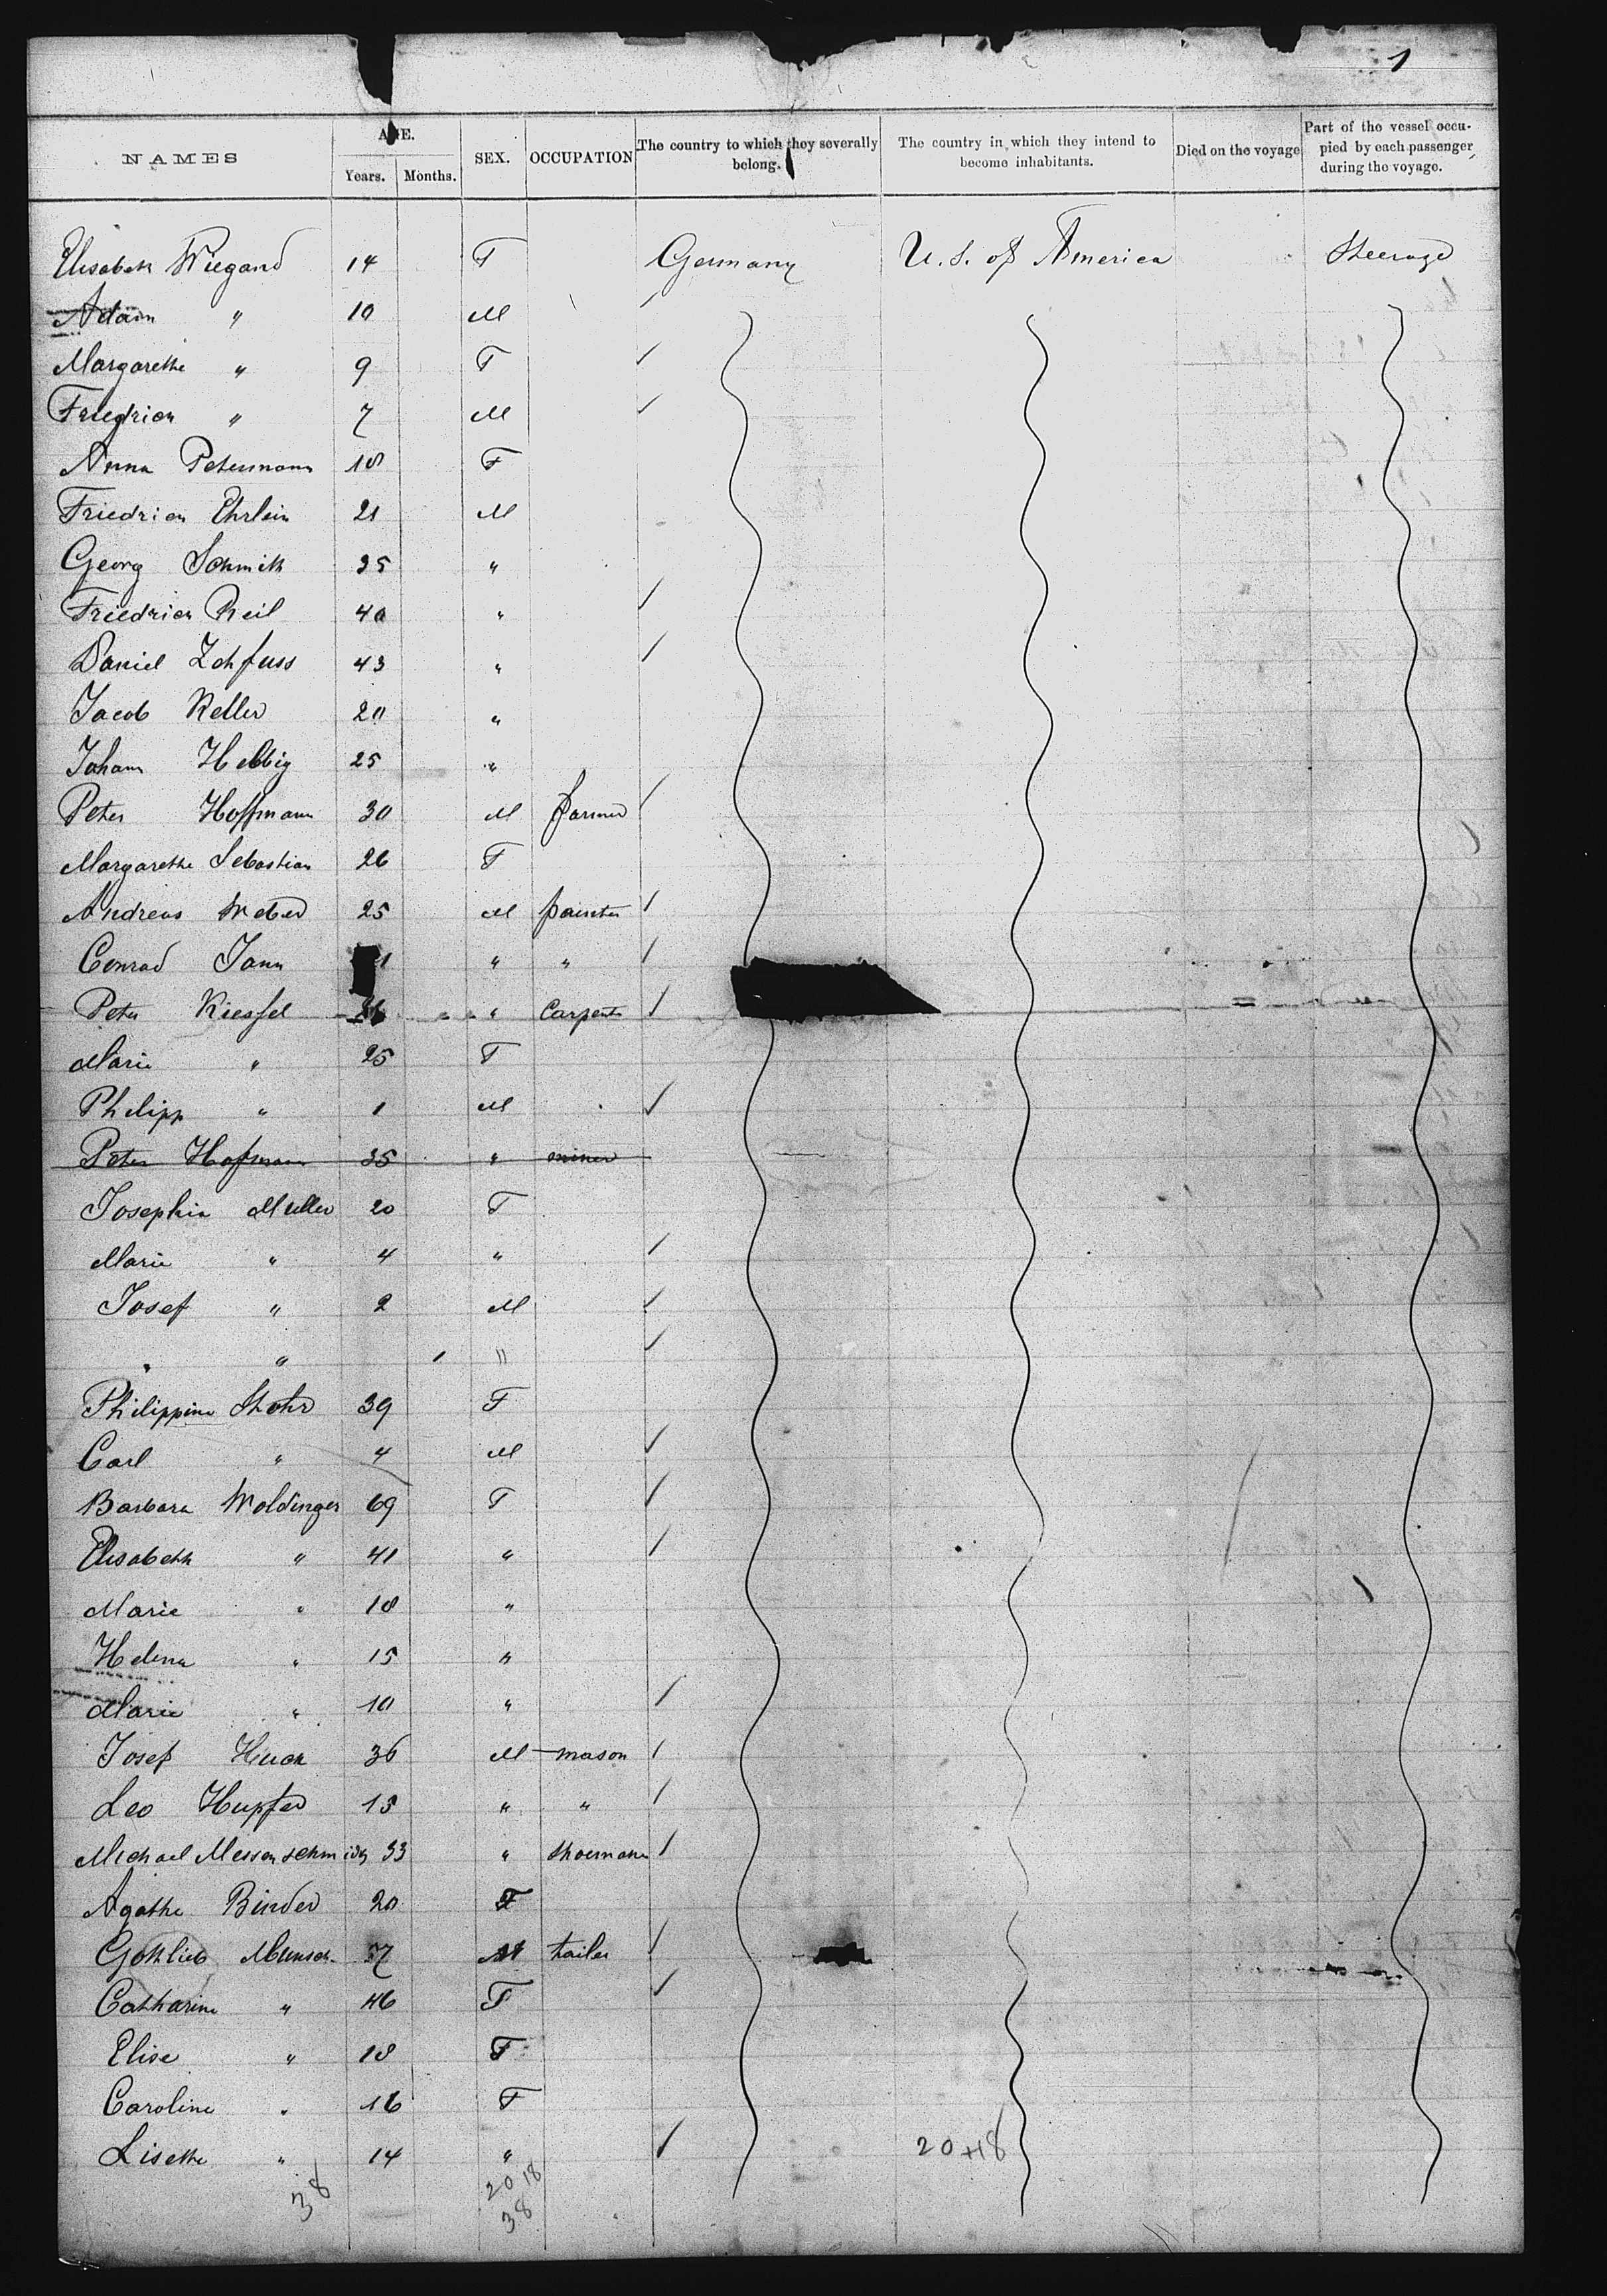 1
NAMES AGE. Years. Months. SEX. OCCUPATION The country to which they severally belong. The country in which they intend to become inhabitants. Died on the voyage Part of the vessel occupied by each passenger during the voyage.
Elisabeth Wiegand 14 F Germany U. S. of America Steerage
Adam " 10 M
Margarethe " 9 F
Friedrich " 7 M
Anna Petermann 18 F
Friedrich Ehrlein 21 M
Georg Schmith 25 "
Friedrich Keil 40 "
Daniel Zohfuss 43 "
Jacob Keller 20 "
Johann Helbig 25 "
Peter Hoffmann 30 M farmer
Margarethe Sebastian 26 F
Andreas Weber 25 M painter
Conrad Jann 1 " "
Peter Kiessel " Carpenter
Marie " 25 F
Philipp " 1 M
Peter Hofmann 35 " miner
Josephin Müller 20 F
Marie " 4 "
Josef " 2 M
" " 1 "
Philippine Stohr 39 F
Carl " 4 M
Barbara Woldinger 69 F
Elisabeth " 41 "
Marie " 18 "
Helena " 15 "
Marie " 10 "
Josef Huck 36 M mason
Leo Hupfer 15 " "
Michael Messerschmidt 33 " Shoemaker
Agathe Binder 20 F
Gottlieb Münsch 37 M tailer
Catharine " 46 F
Elise " 18 F
Caroline " 16 F
Lisette " 14 " 20+18
38 20 18
38